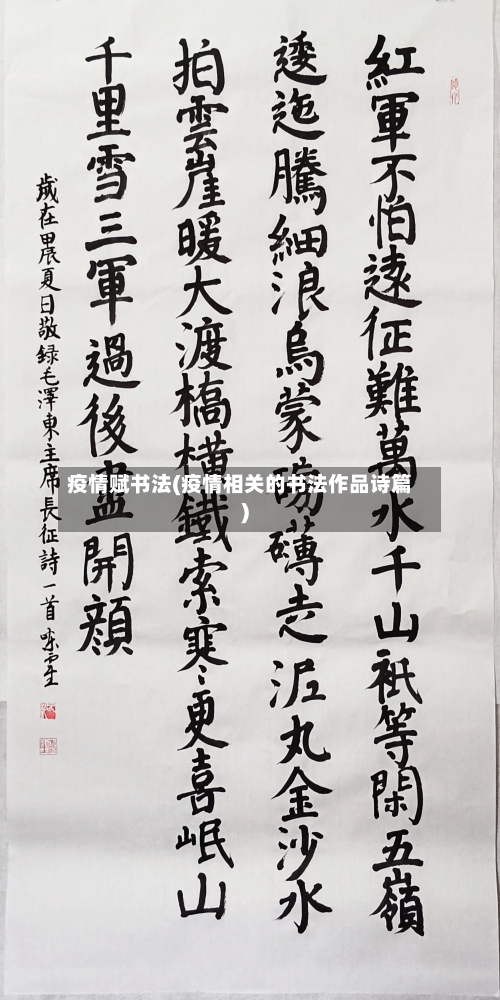 紅軍不怕遠征難萬水千山衹等閑五嶺
逶迤騰細浪烏蒙磅礴走泥丸金沙水
拍雲崖暖大渡橋橫鐵索寒更喜岷山
千里雪三軍過後盡開顔
歲在甲辰夏日敬録毛澤東主席長征詩一首
疫情赋书法(疫情相关的书法作品诗篇
)